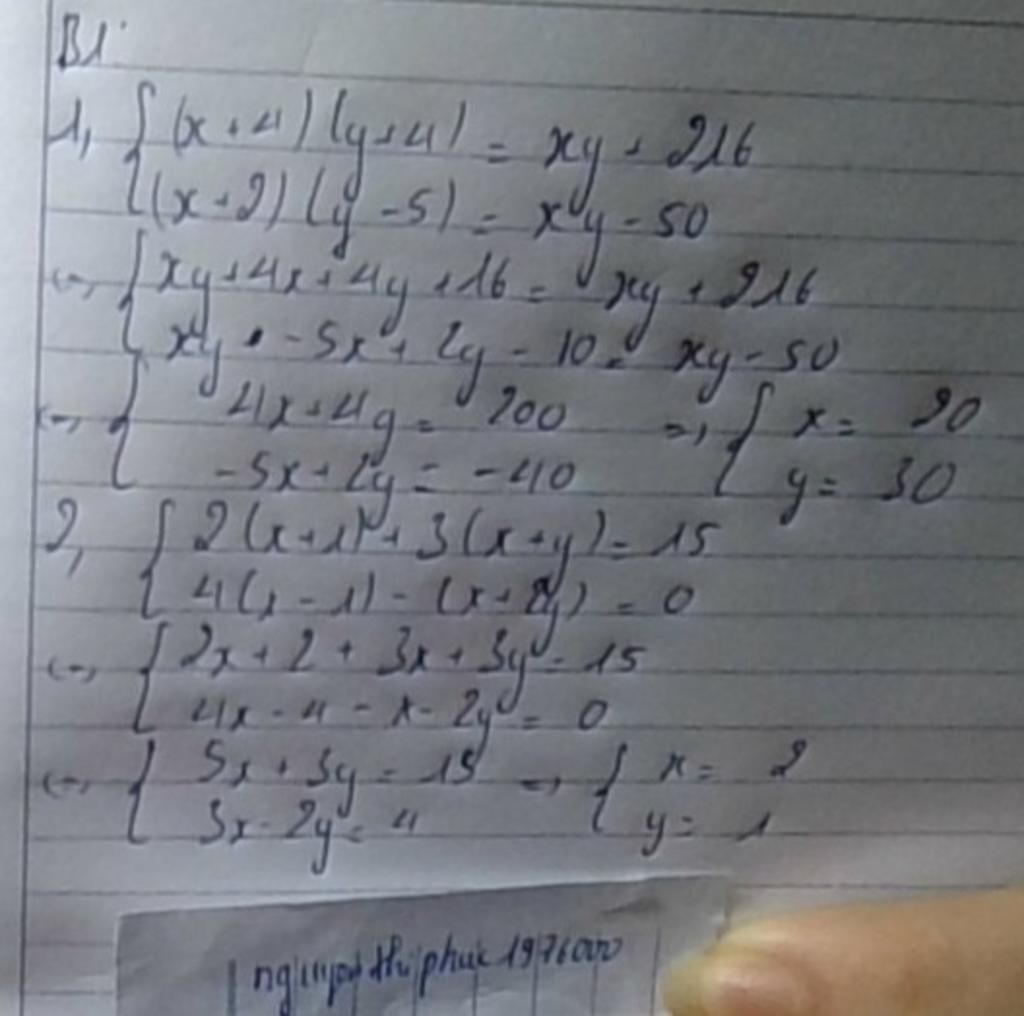 B1
1, { (x+4)(y+4) = xy + 216
(x+2)(y-5) = xy - 50
<-> { xy+4x+4y+16 = xy + 216
xy - 5x + 2y - 10 = xy - 50
<-> { 4x+4y = 200 => { x = 20
-5x+2y = -40 y = 30
2, { 2(x+1) + 3(x+y) = 15
4(x-1) - (x+2y) = 0
<-> { 2x+2+3x+3y = 15
4x-4-x-2y = 0
<-> { 5x+3y = 13 => { x = 2
3x-2y = 4 y = 1
thị phuc 1976000